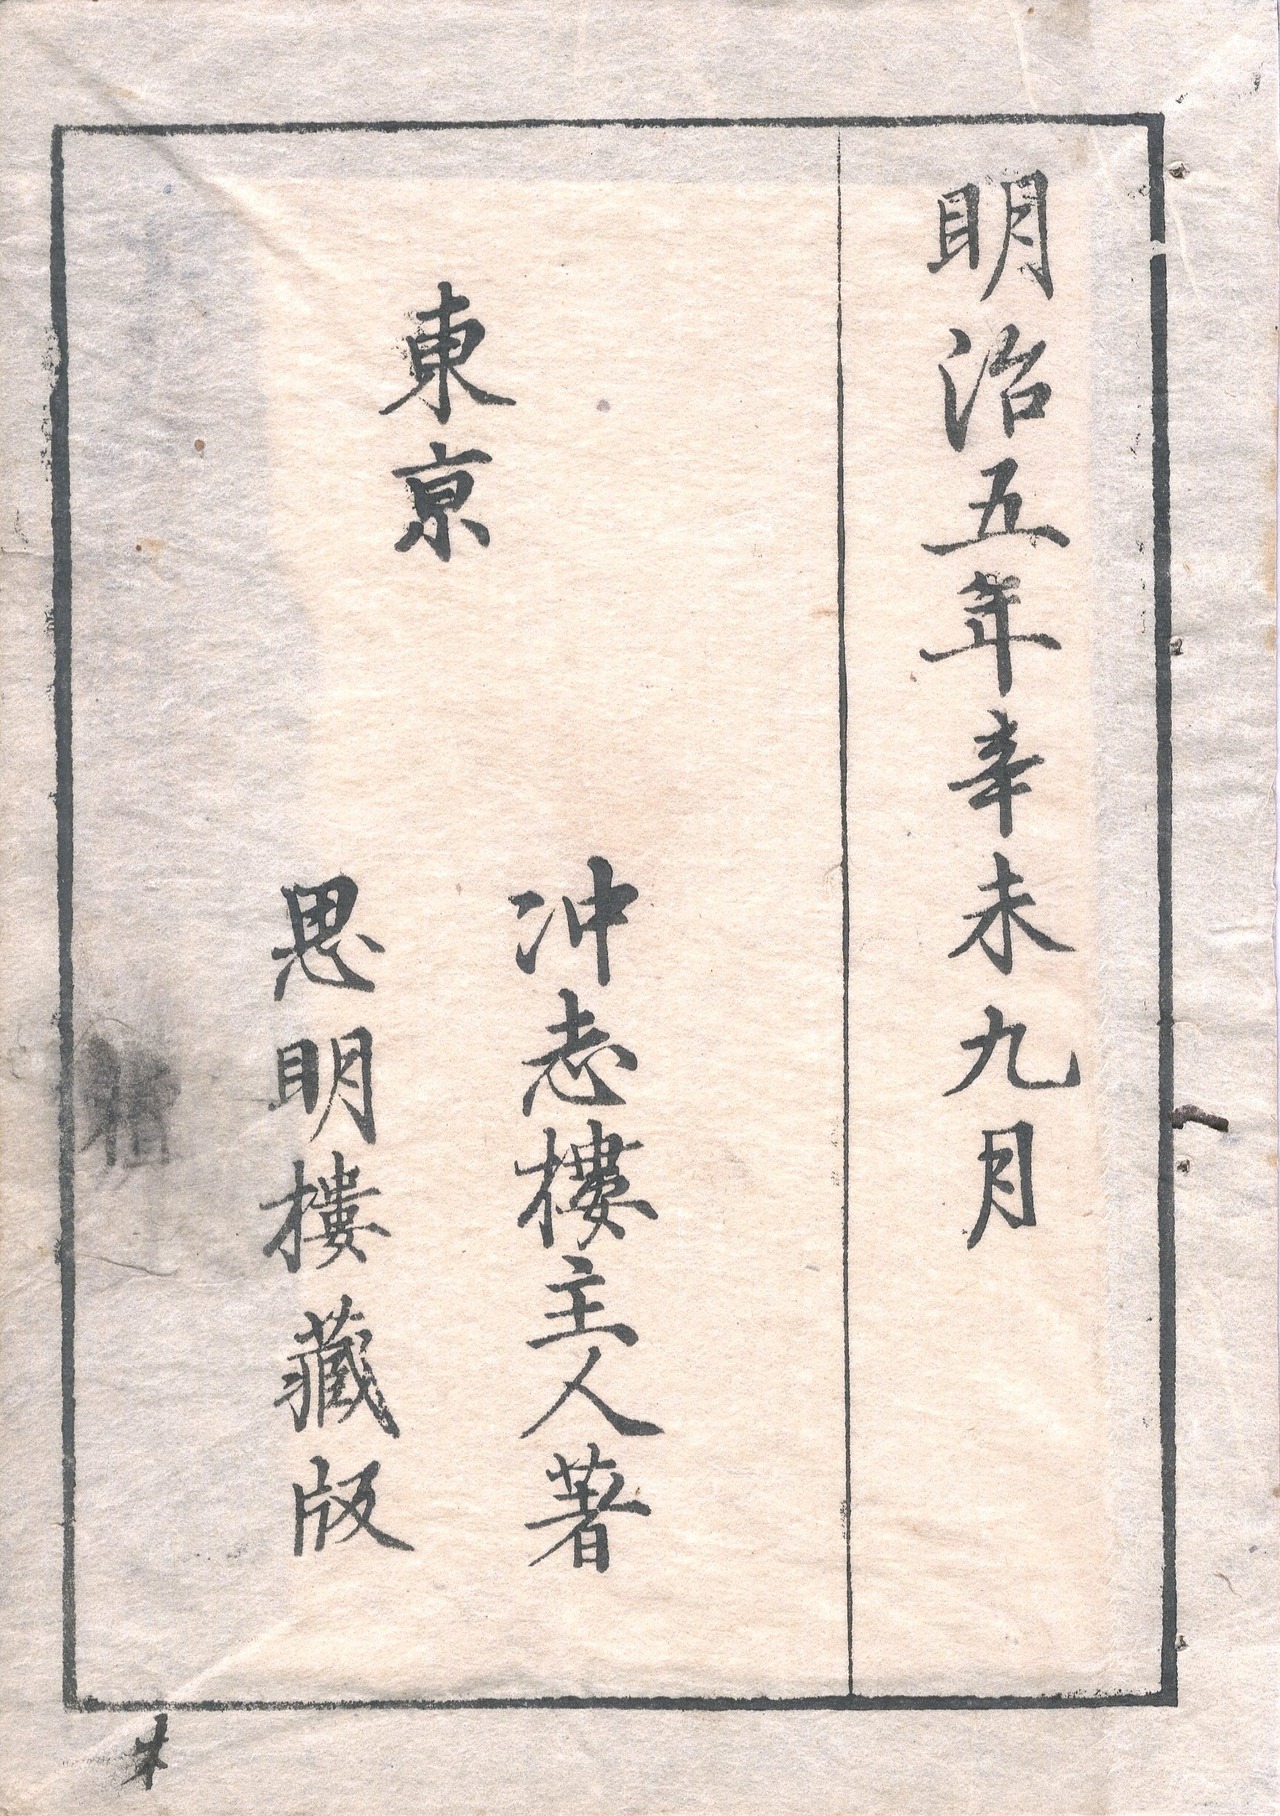 明治五年辛未九月
冲志樓主人著
東亰
思明樓藏版